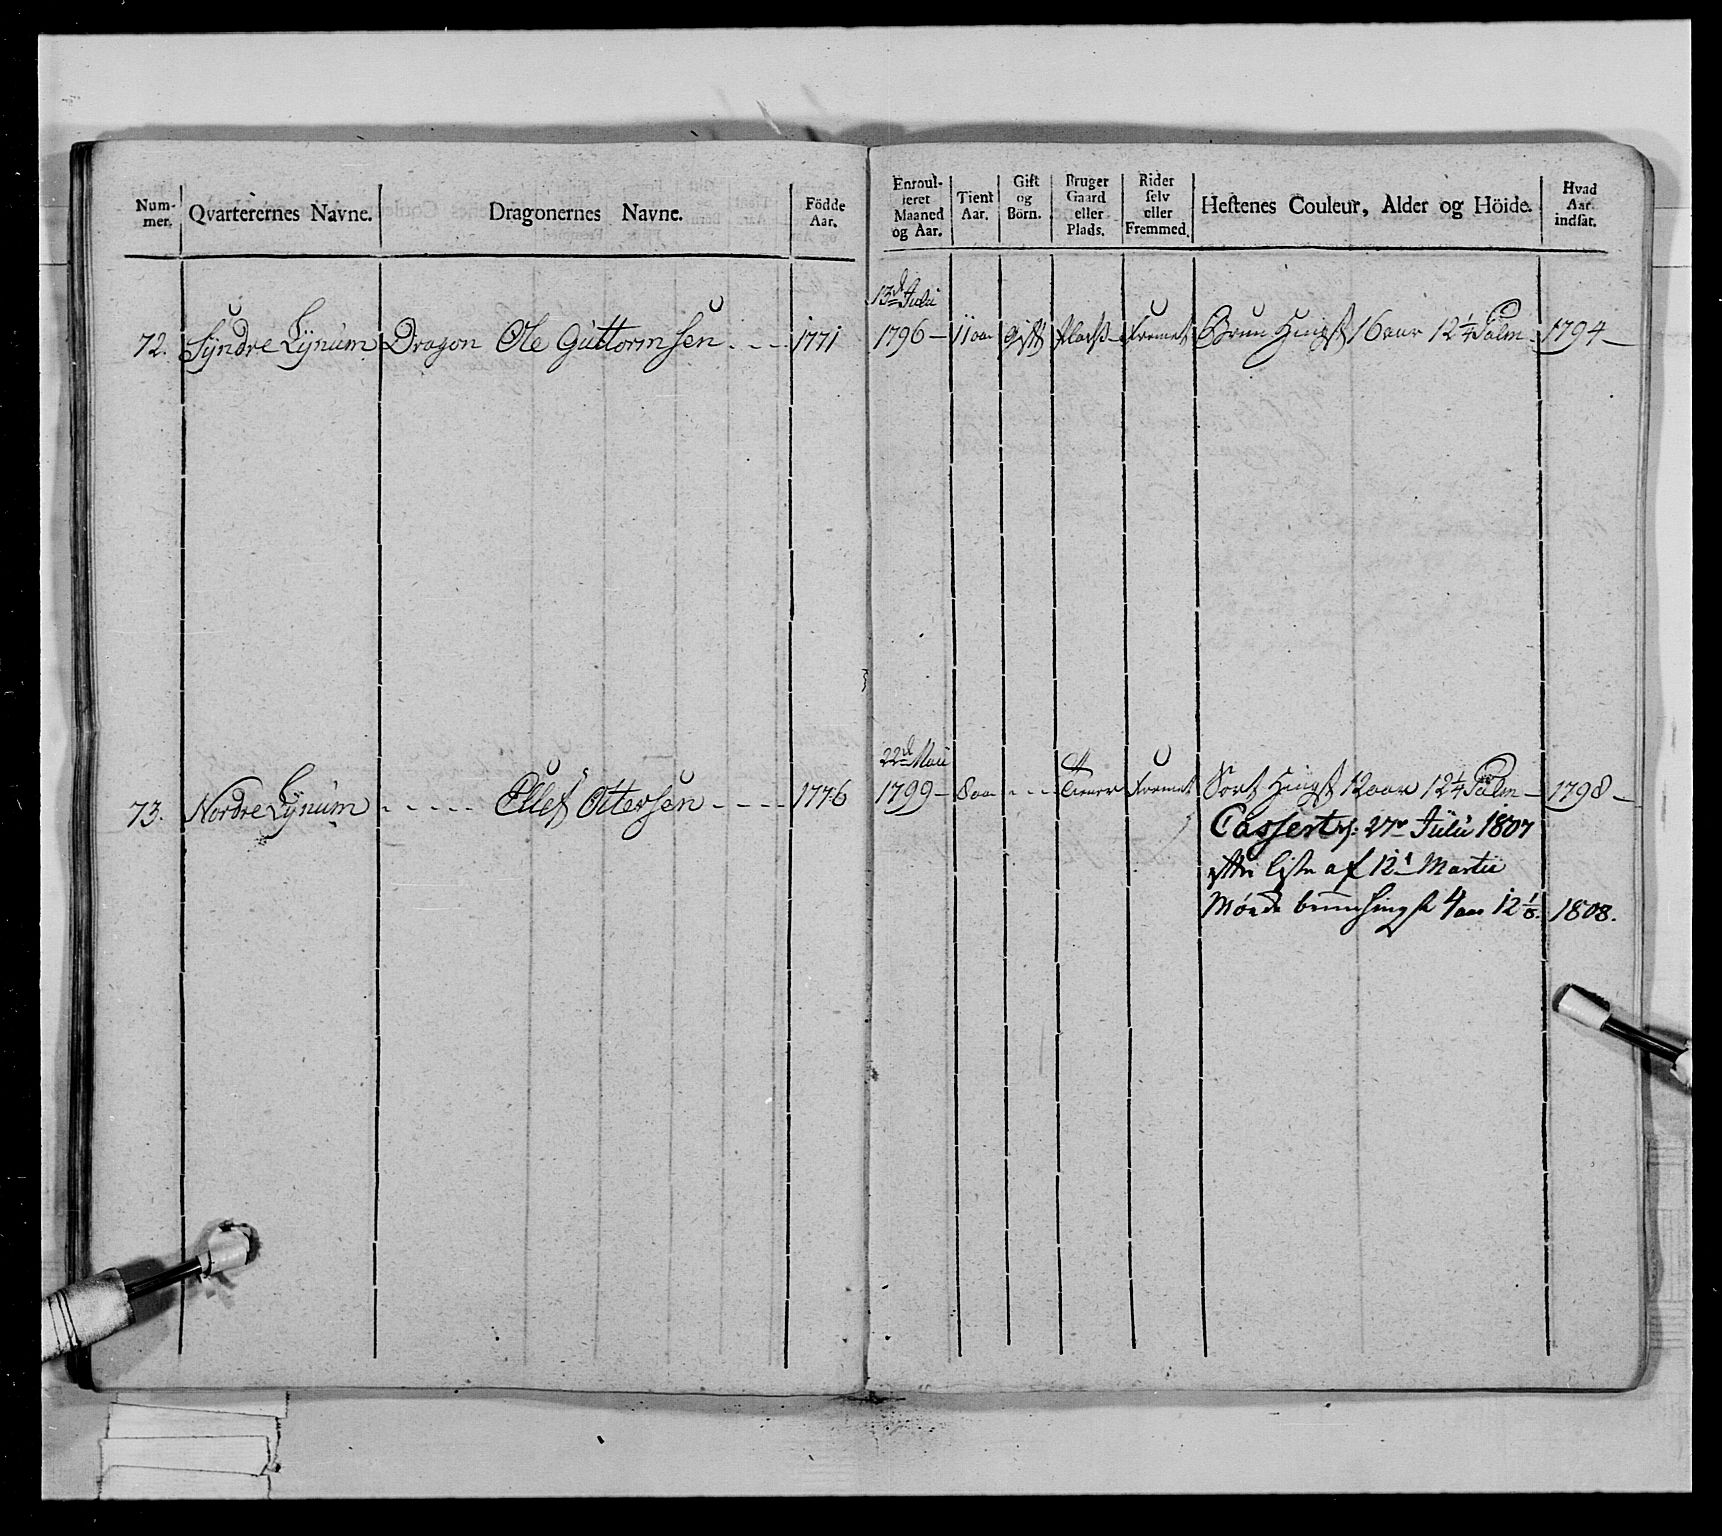 Num-
mer.
Qvarterernes Navne.
Dragonernes Navne.
Födde
Aar.
Enroul-
leret
Maaned
og Aar.
Tient
Aar.
Gift
og
Börn.
Bruger
Gaard
eller
Plads.
Rider
selv
eller
Fremmed.
Hestenes Couleur, Alder og Höide.
Hvad
Aar
indsat.
13de Julii
72. Syndre Lynum Dragon Ole Guttormsen 1771 1796 11 aar Gift Plads Fremet Brun Hingst 16 aar 12 1/4 Palm 1794
22de Maii
73. Nordre Lynum Ellef Ottersen 1776 1799 8 aar Fremet Sort Hingst 12 aar 12 1/4 Palm 1798
Cassert 27 Julii 1807
liste af 12 Martii
Mörk brun hingst 4 aar 12 1/8. 1808.